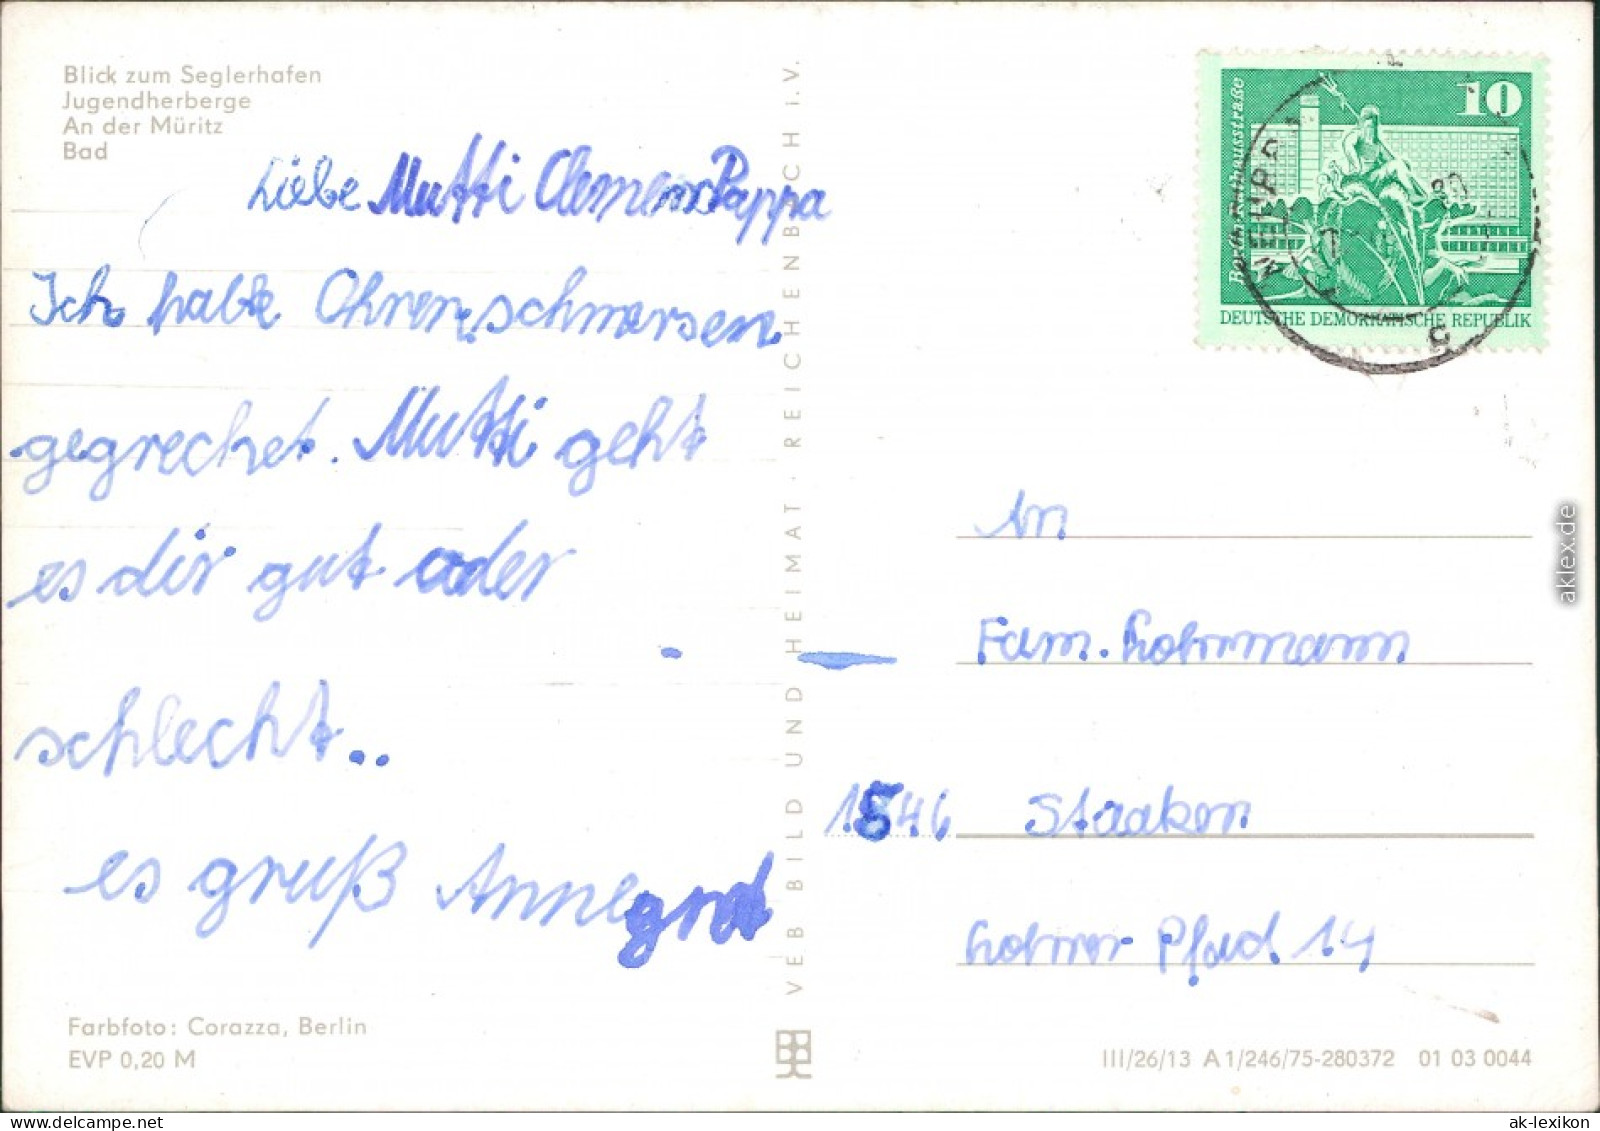 Blick zum Seglerhafen
Jugendherberge
An der Müritz
Bad
Liebe Mutti Clemens Pappa
Ich habte Ohrenschmersen
gegrechet. Mutti geht
es dir gut oder
schlecht..
es gruß Annegrat
Farbfoto: Corazza, Berlin
EVP 0,20 M
VEB BILD UND HEIMAT · REICHENBACH i. V.
10
Berlin Rathausstraße
DEUTSCHE DEMOKRATISCHE REPUBLIK
An
Fam. Lohrmann
1546 Staaken
Pfad 14
III/26/13 A 1/246/75-280372 01 03 0044
aklex.de
ak-lexikon